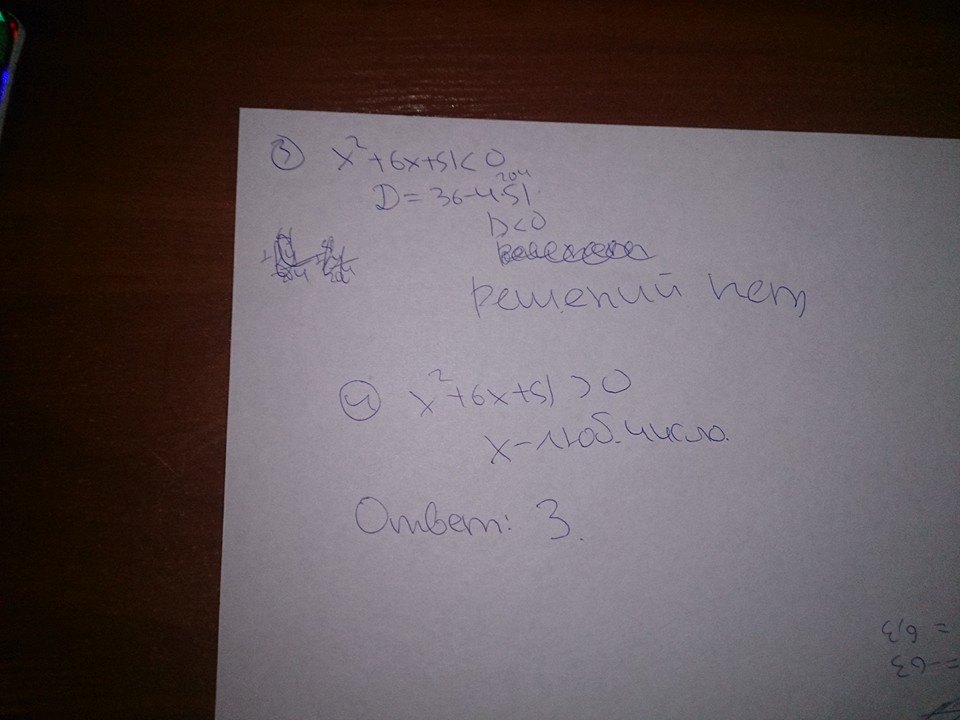 ③ x²+6x+51<0
204
D=36-4·51
D<0
решений нет
④ x²+6x+51>0
x-люб.число.
Ответ: 3.
= 6,3
=-63